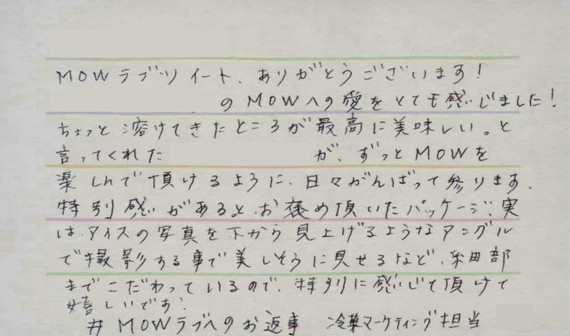 MOWラブツイート、ありがとうございます!
のMOWへの愛をとても感じました!
ちょっと溶けてきたところが最高に美味しい。と
言ってくれた が、ずっとMOWを
楽しんで頂けるように、日々がんばって参ります。
特別感があると、お褒め頂いたパッケージ実
は、アイスの写真を下から見上げるようなアングル
で撮影する事で美しそうに見せるなど、細部
までこだわっているので、特別に感じて頂けて
嬉しいです。
#MOWラブへのお返事 冷菓マーケティング担当